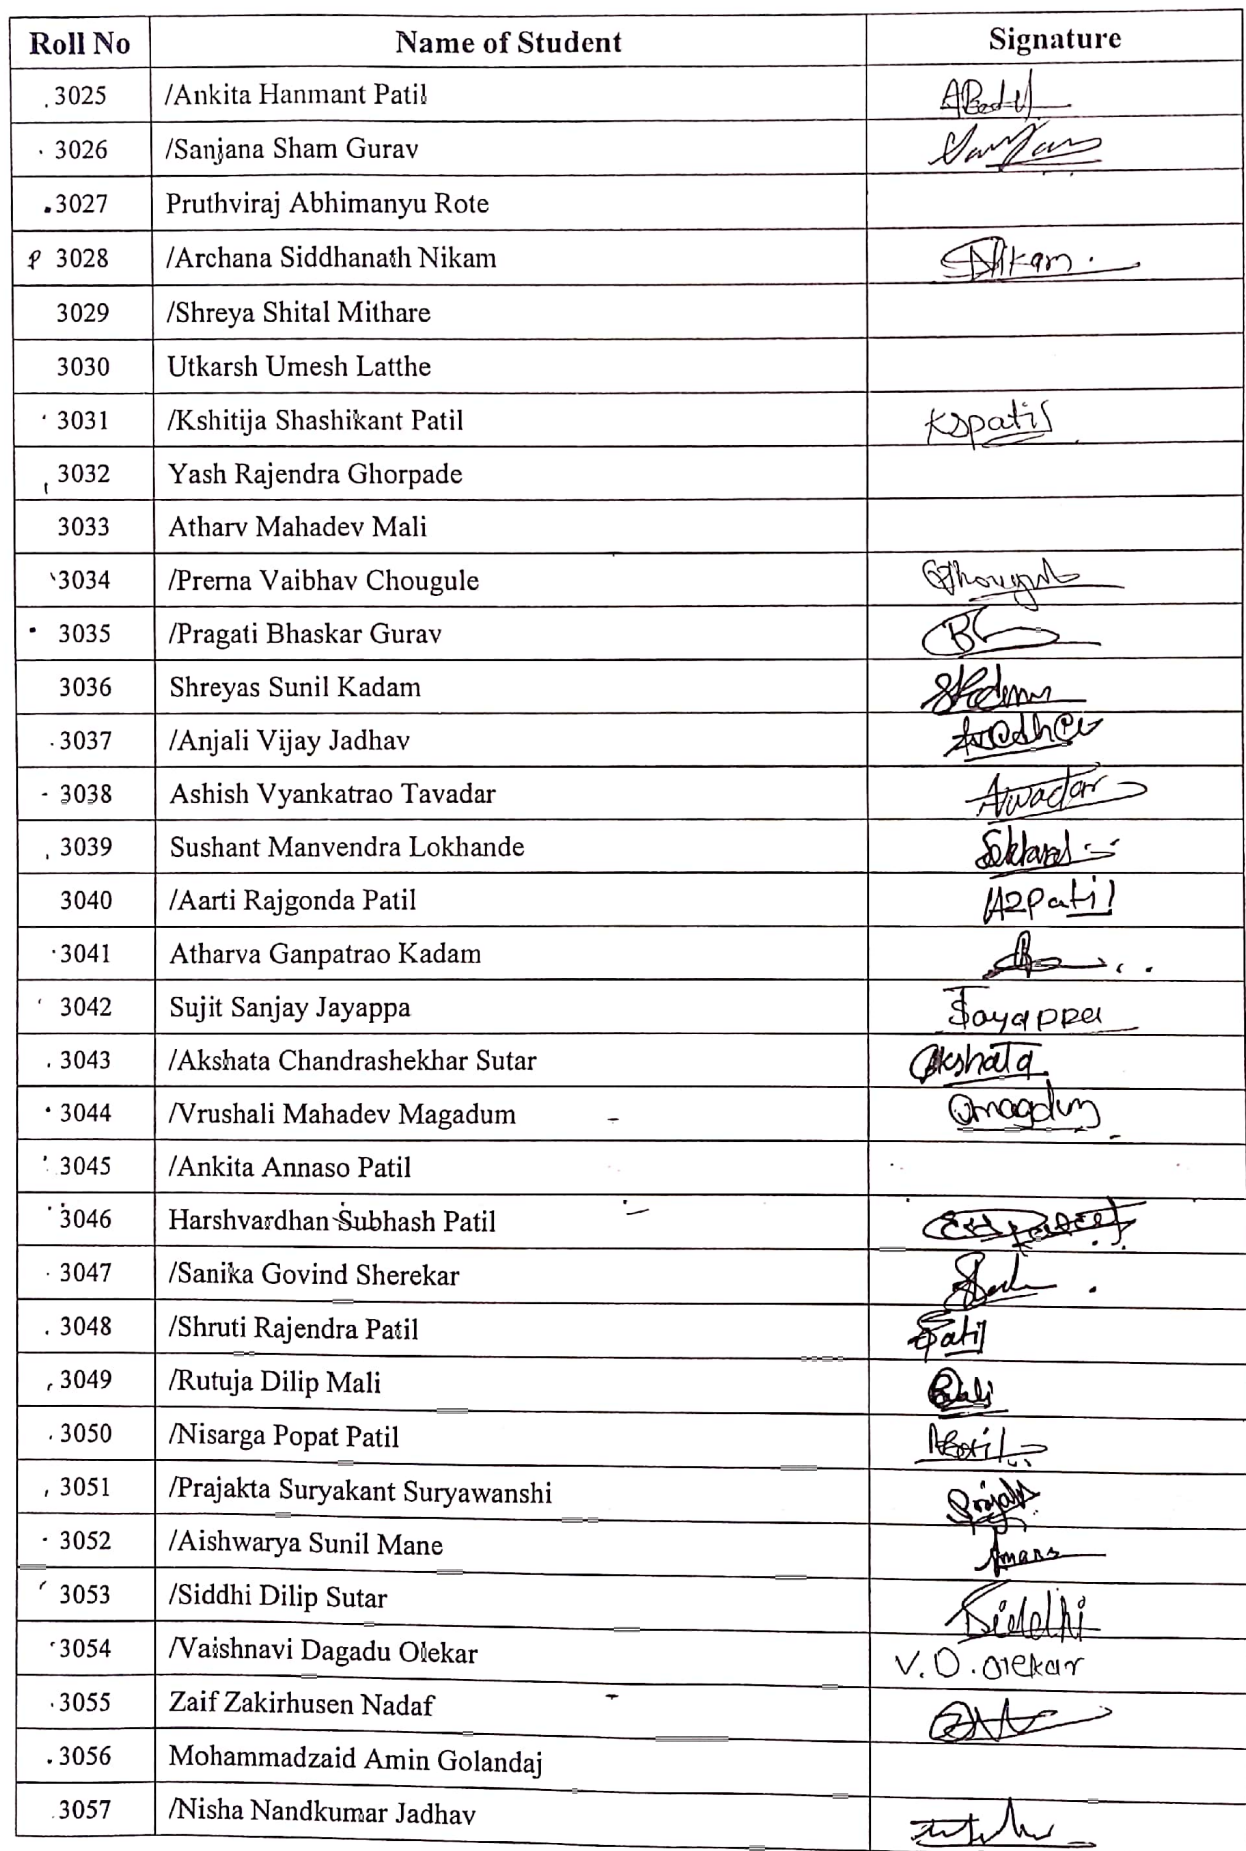 Roll No Name of Student Signature
3025 /Ankita Hanmant Patil
3026 /Sanjana Sham Gurav
3027 Pruthviraj Abhimanyu Rote
3028 /Archana Siddhanath Nikam Nikam
3029 /Shreya Shital Mithare
3030 Utkarsh Umesh Latthe
3031 /Kshitija Shashikant Patil KSpatil
3032 Yash Rajendra Ghorpade
3033 Atharv Mahadev Mali
3034 /Prerna Vaibhav Chougule
3035 /Pragati Bhaskar Gurav
3036 Shreyas Sunil Kadam
3037 /Anjali Vijay Jadhav
3038 Ashish Vyankatrao Tavadar
3039 Sushant Manvendra Lokhande
3040 /Aarti Rajgonda Patil ARPatil
3041 Atharva Ganpatrao Kadam
3042 Sujit Sanjay Jayappa Jayappa
3043 /Akshata Chandrashekhar Sutar Akshata
3044 /Vrushali Mahadev Magadum
3045 /Ankita Annaso Patil
3046 Harshvardhan Subhash Patil
3047 /Sanika Govind Sherekar
3048 /Shruti Rajendra Patil Spatil
3049 /Rutuja Dilip Mali
3050 /Nisarga Popat Patil
3051 /Prajakta Suryakant Suryawanshi
3052 /Aishwarya Sunil Mane
3053 /Siddhi Dilip Sutar Siddhi
3054 /Vaishnavi Dagadu Olekar V.D.Olekar
3055 Zaif Zakirhusen Nadaf
3056 Mohammadzaid Amin Golandaj
3057 /Nisha Nandkumar Jadhav